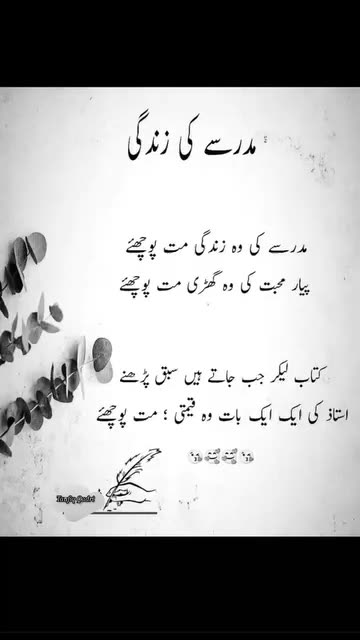 مدرسے کی زندگی
مدرسے کی وہ زندگی مت پوچھئے
پیار محبت کی وہ گھڑی مت پوچھئے
کتاب لیکر جب جاتے ہیں سبق پڑھنے
استاذ کی ایک ایک بات وہ قیمتی ؛ مت پوچھئے
Tanfiq Qadri